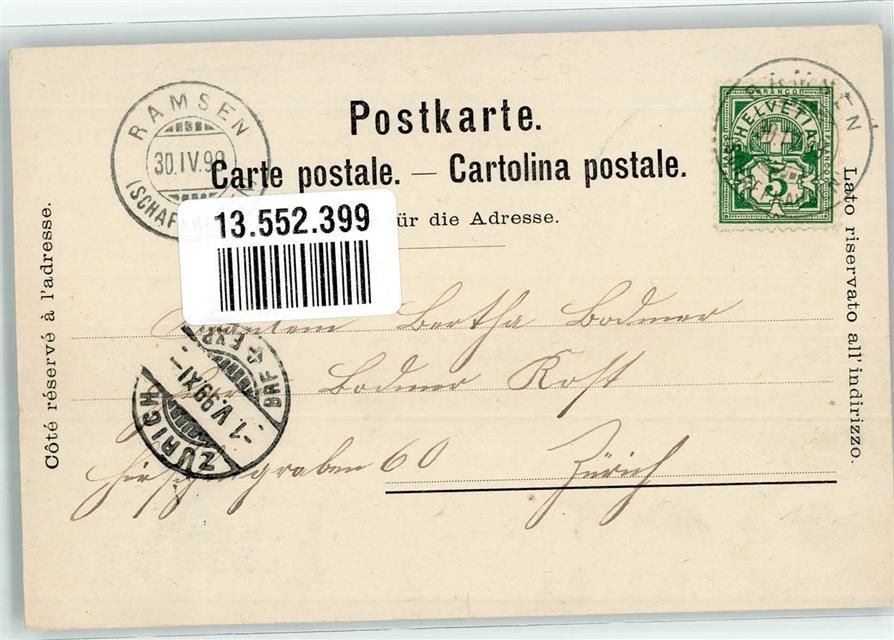 RAMSEN
30.IV.99
(SCHAFFH
Postkarte.
Carte postale. — Cartolina postale.
für die Adresse.
13.552.399
FRANCO
HELVETIA
FRANCO
5
Côté réservé à l'adresse.
Lato riservato all' indirizzo.
Fräulein Bertha Bodmer
Bodmer Kost
Hirschengraben 60 Zürich
ZÜRICH
-1.V.99 XI-
BRF EXP